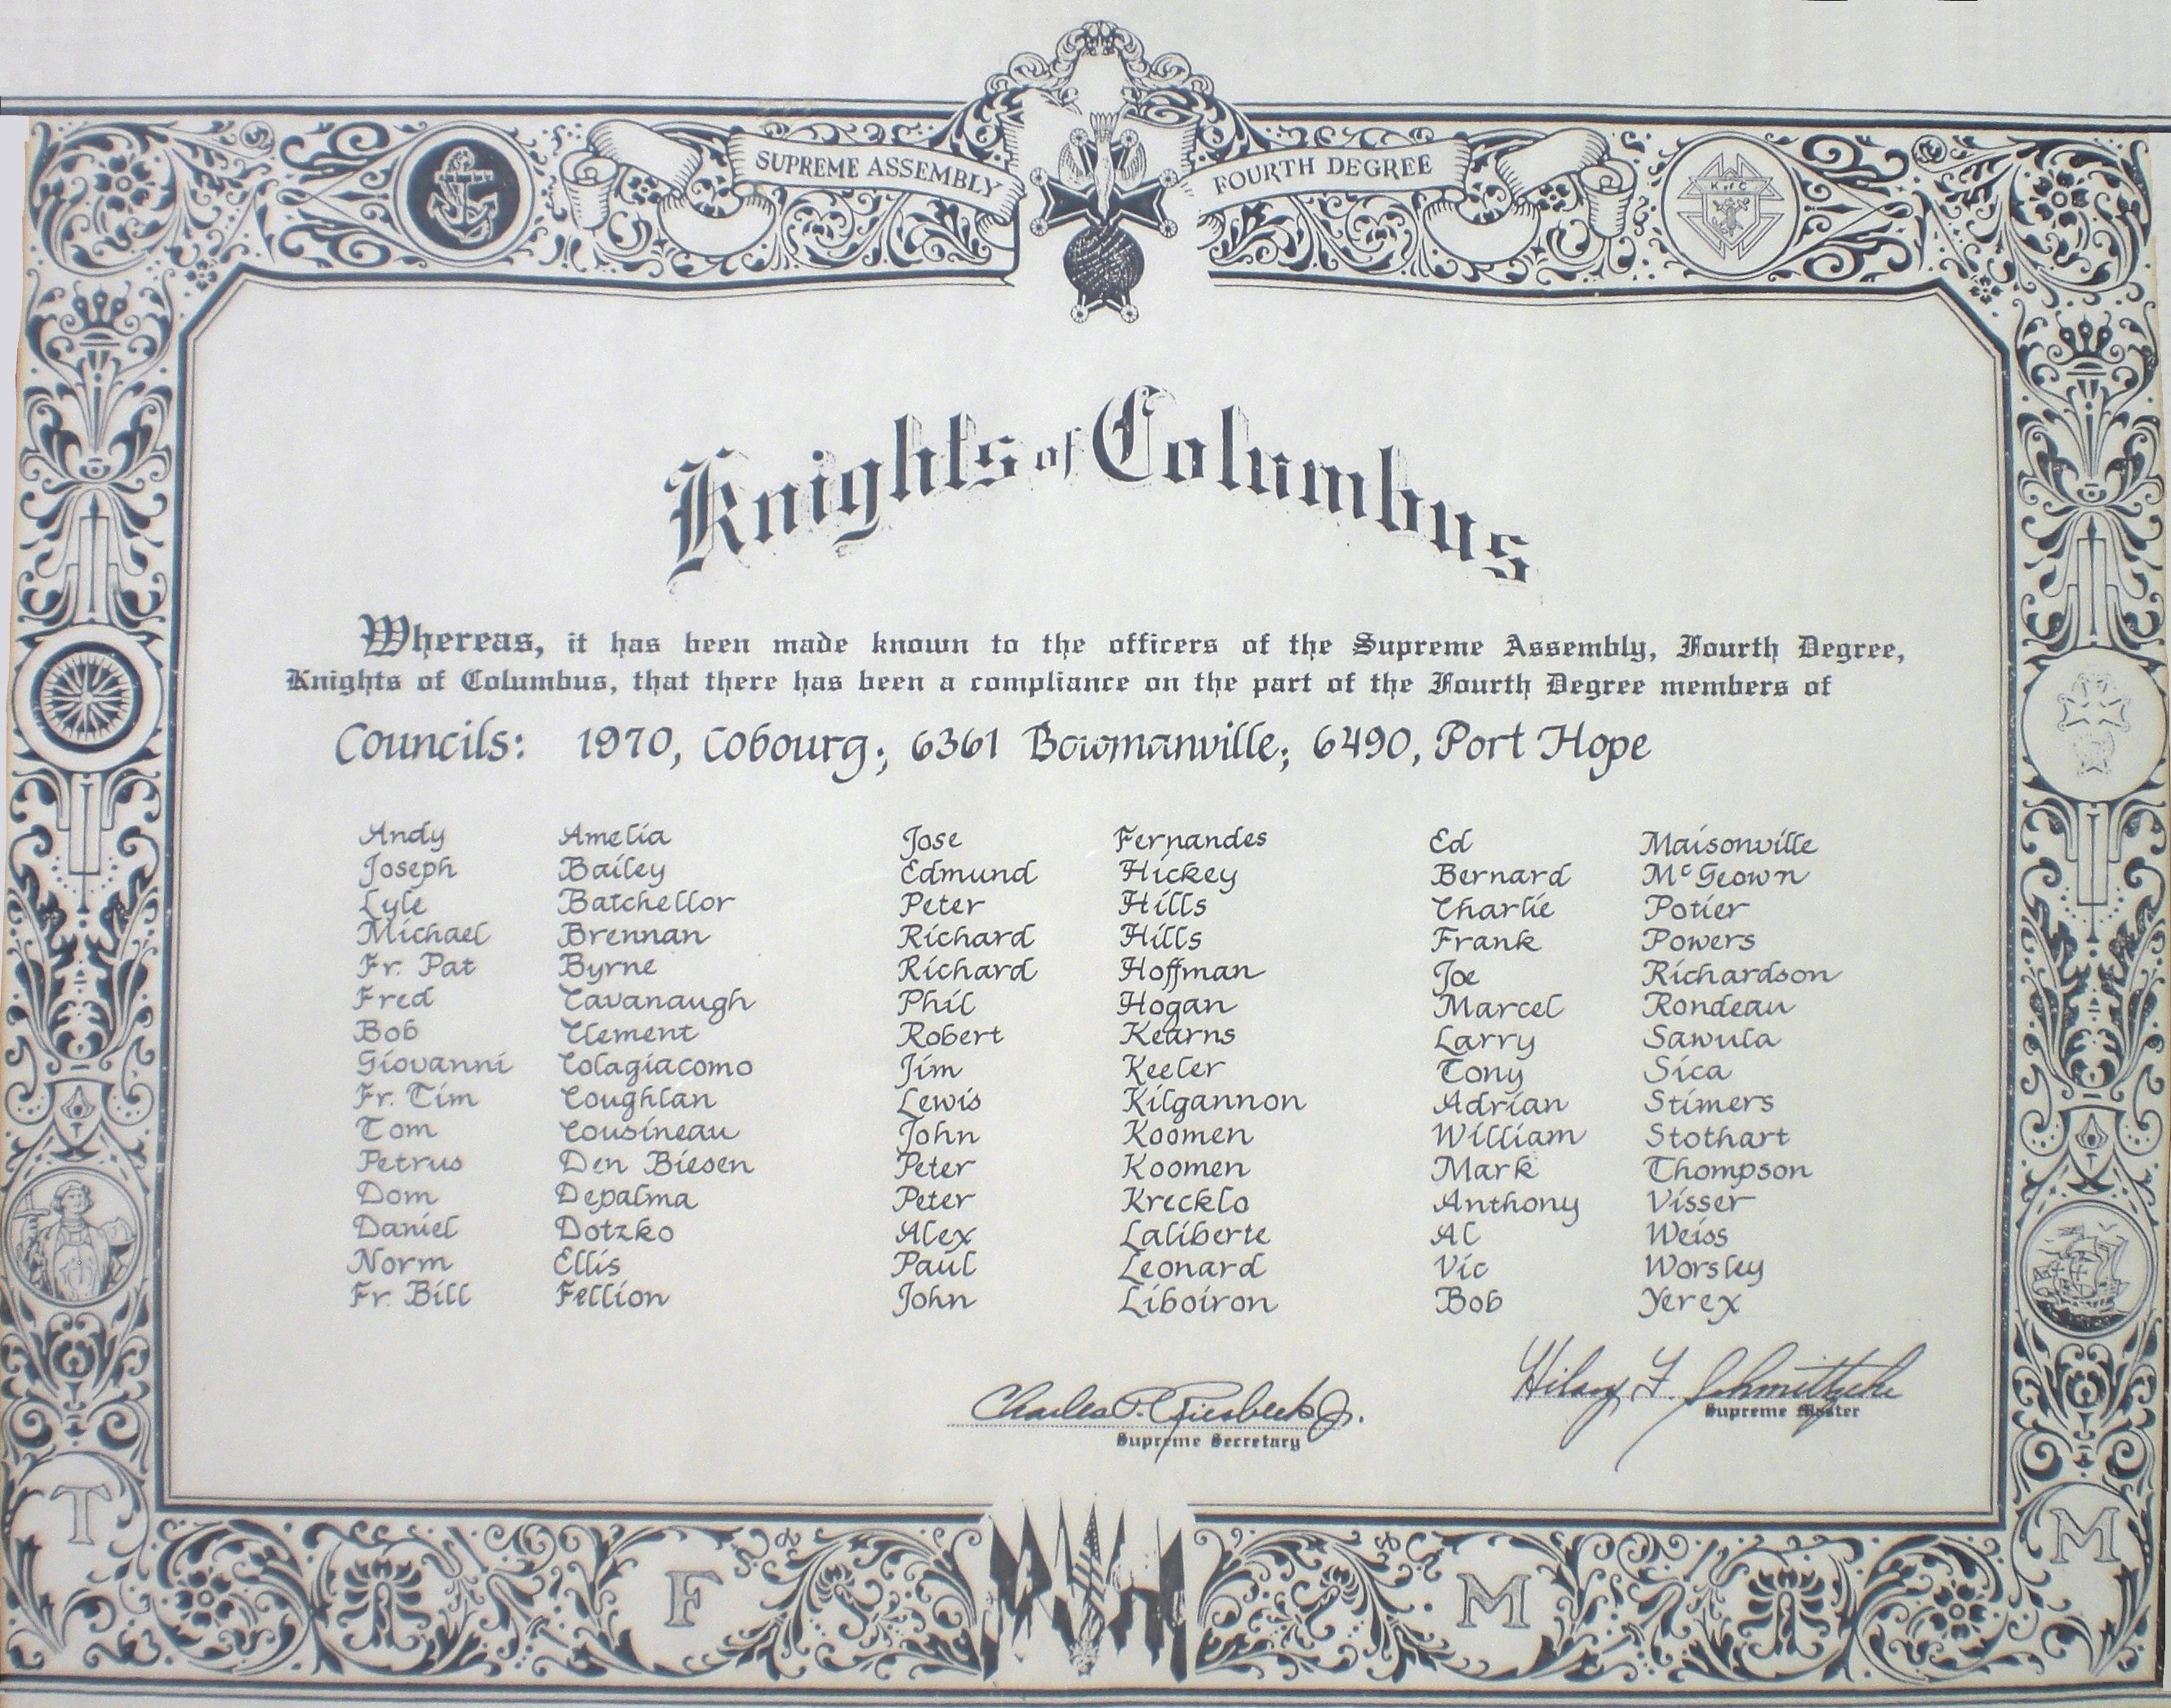 SUPREME ASSEMBLY FOURTH DEGREE
K of C
Knights of Columbus
Whereas, it has been made known to the officers of the Supreme Assembly, Fourth Degree,
Knights of Columbus, that there has been a compliance on the part of the Fourth Degree members of
Councils: 1970, Cobourg; 6361 Bowmanville; 6490, Port Hope
Andy Amelia Jose Fernandes Ed Maisonville
Joseph Bailey Edmund Hickey Bernard McGeown
Lyle Batchellor Peter Hills Charlie Potier
Michael Brennan Richard Hills Frank Powers
Fr. Pat Byrne Richard Hoffman Joe Richardson
Fred Cavanaugh Phil Hogan Marcel Rondeau
Bob Clement Robert Kearns Larry Sawula
Giovanni Colagiacomo Jim Keeler Tony Sica
Fr. Tim Coughlan Lewis Kilgannon Adrian Stimers
Tom Cousineau John Koomen William Stothart
Petrus Den Biesen Peter Koomen Mark Thompson
Dom Depalma Peter Krecklo Anthony Visser
Daniel Dotzko Alex Laliberte Al Weiss
Norm Ellis Paul Leonard Vic Worsley
Fr. Bill Fellion John Liboiron Bob Yerex
Charles P. Riesbeck Jr. Hilary F. Schmittzehe
Supreme Secretary Supreme Master
T F M M